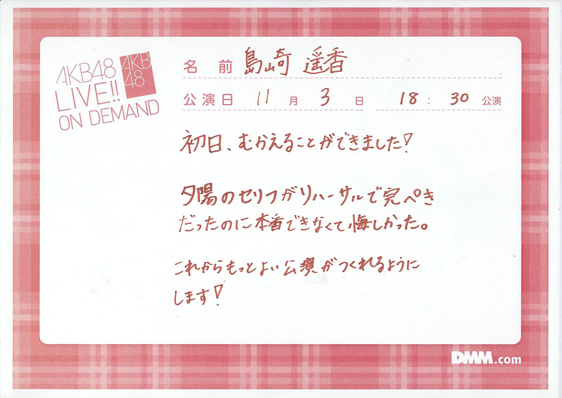 AKB48
LIVE!!
ON DEMAND
AKB
48
名前 島崎 遥香
公演日 11月3日 18:30公演
初日、むかえることができました!
夕陽のセリフがリハーサルで完ぺき
だったのに本番できなくて悔しかった。
これからもっとよい公演がつくれるように
します!
DMM.com